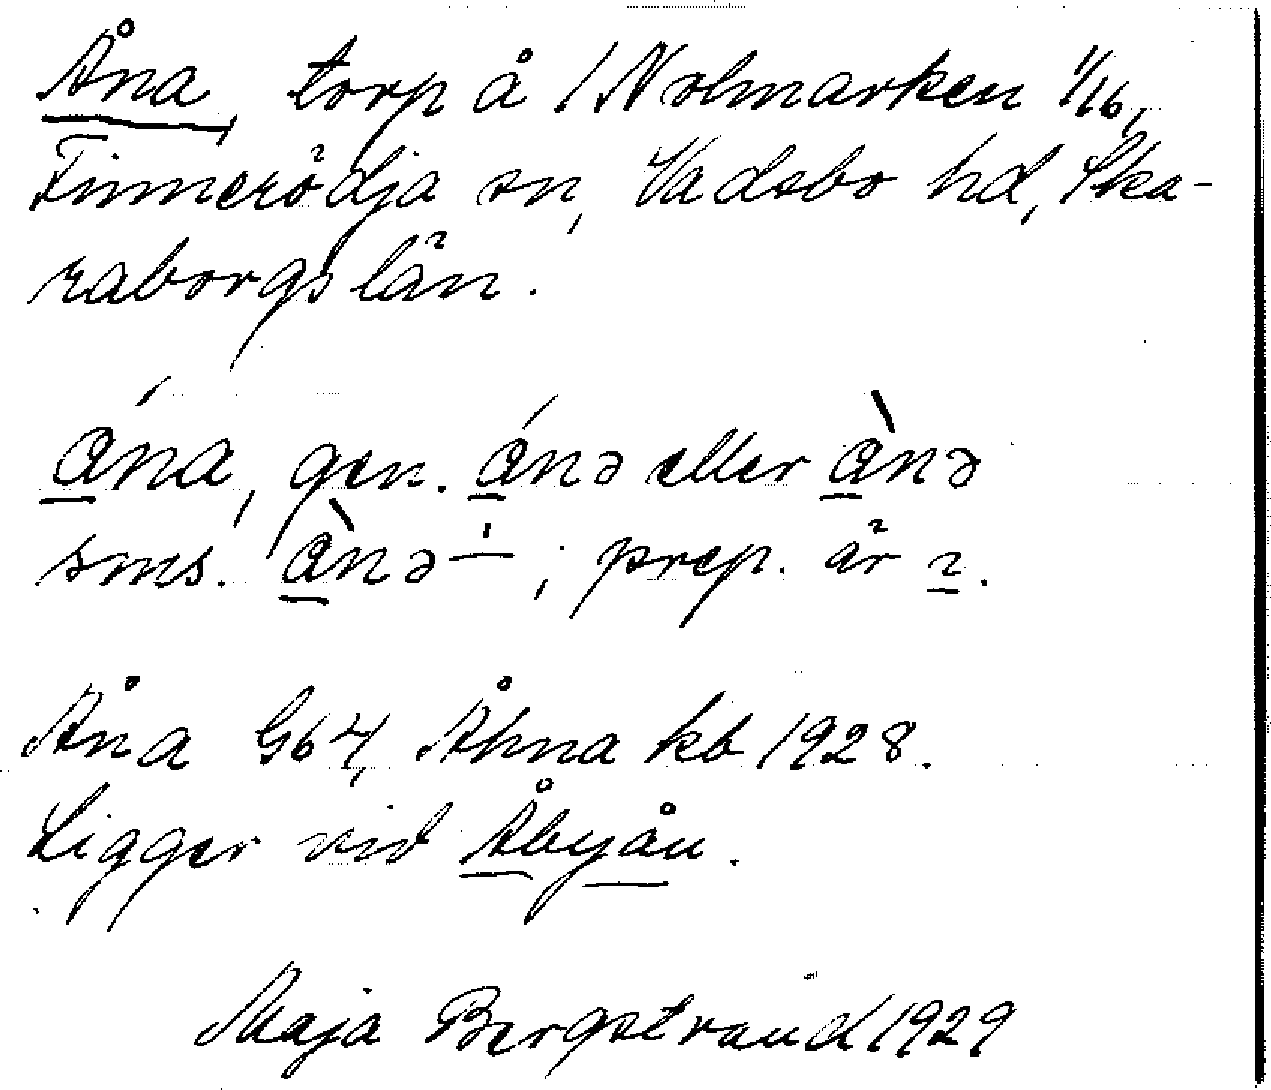 Åna, torp å 1 Nolmarken 1/16,
Finnerödja sn, Vadsbo hd, Ska-
raborgs län.
ɑ́na, gen. ɑ́nə eller ɑ̀nə
sms. ɑ̀nə-; prep. är ɪ.
Åna G64, Åhna kb 1928.
Ligger vid Åbyån.
Maja Bergstrand 1929